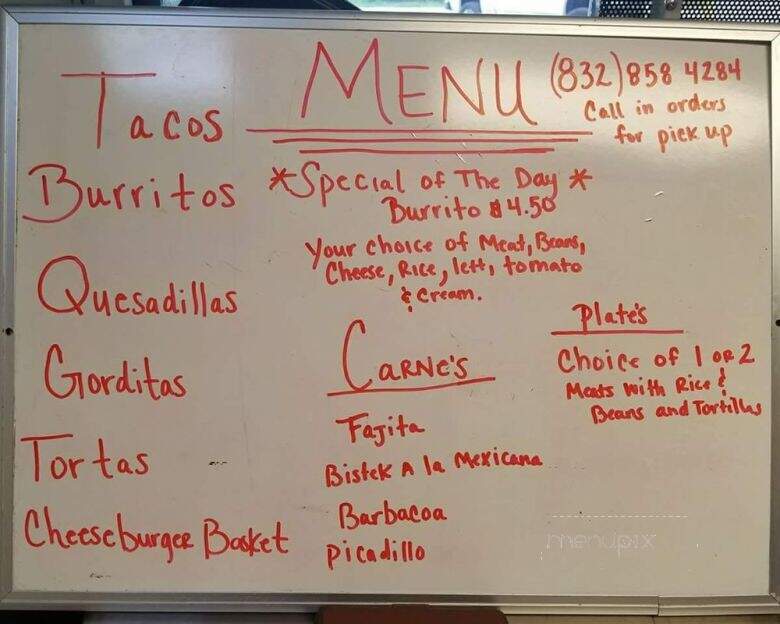 MENU
(832) 858 4284
Call in orders
for pick up
Tacos
Burritos
Quesadillas
Gorditas
Tortas
Cheeseburger Basket
*Special of The Day*
Burrito $4.50
Your choice of Meat, Beans,
Cheese, Rice, lett, tomato
& Cream.
CARNE'S
Fajita
Bistek A la Mexicana
Barbacoa
Picadillo
Plate's
Choice of 1 OR 2
Meats with Rice &
Beans and Tortillas
menupix